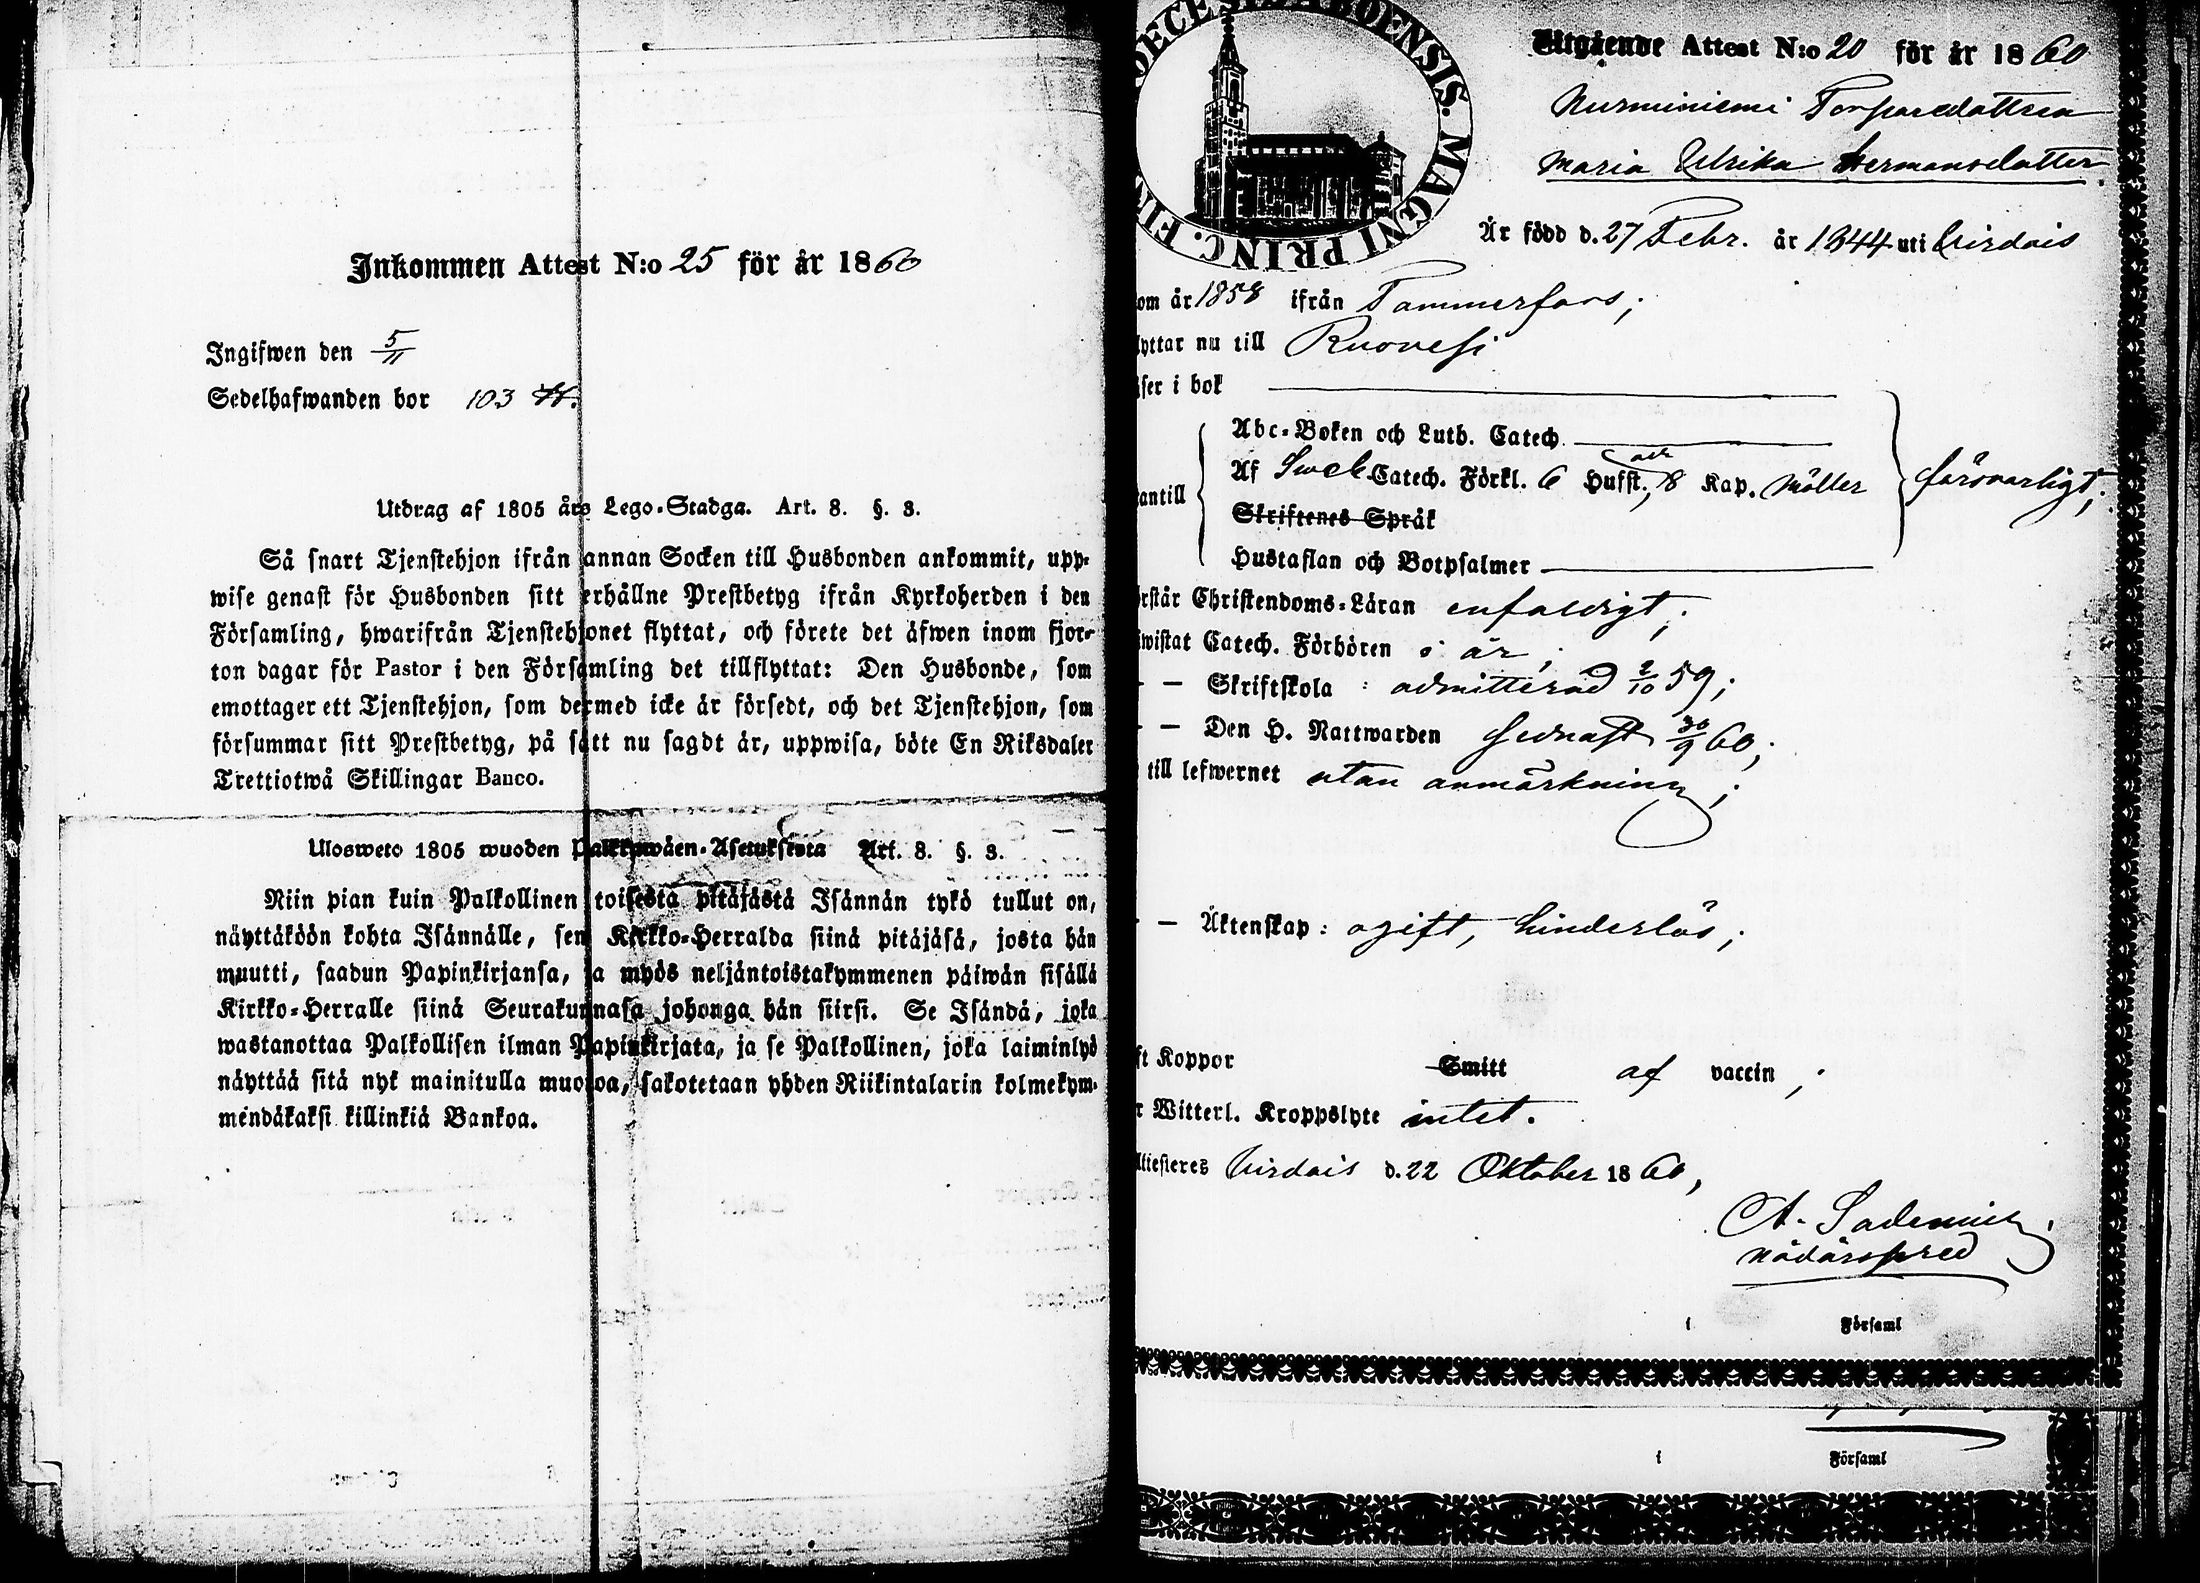 Inkommen Attest N:o 25 för år 1860
Ingifwen den 5/11
Sedelhafwanden bor 103
Utdrag af 1805 års Lego-Stadga. Art. 8. §. 8.
Så snart Tjenstehjon ifrån annan Socken till Husbonden ankommit, upp-
wise genast för Husbonden sitt erhållne Prestbetyg ifrån Kyrkoherden i den
Församling, hwarifrån Tjenstehjonet flyttat, och förete det äfwen inom fjor-
ton dagar för Pastor i den Församling det tillflyttat: Den Husbonde, som
emottager ett Tjenstehjon, som dermed icke är försedt, och det Tjenstehjon, som
försummar sitt Prestbetyg, på sätt nu sagdt är, uppwisa, böte En Riksdaler
Trettiotwå Skillingar Banco.
Ulosweto 1805 wuoden Palkkawäen-Asetuksesta Art. 8. §. 8.
Niin pian kuin Palkollinen toisesta pitäjästä Isännän tykö tullut on,
näyttäköön kohta Isännälle, sen Kirkko-Herralda siinä pitäjäsä, josta hän
muutti, saadun Papinkirjansa, ja myös neljäntoistakymmenen päiwän sisällä
Kirkko-Herralle siinä Seurakunnasa johonga hän siirsi. Se Isändä, joka
wastanottaa Palkollisen ilman Papinkirjata, ja se Palkollinen, joka laiminlyö
näyttää sitä nyk mainitulla muotoa, sakotetaan yhden Riikintalarin kolmekym-
mendäkaksi killinkiä Bankoa.
DECESIS ABOENSIS. MAGNI PRINC. FIN
Utgående Attest N:o 20 för år 1860
Nurminiemi Torparedottren
Maria Ulrika Hermansdotter
Är född d. 27 Febr. år 1844 uti Virdois
om år 1858 ifrån Tammerfors;
lyttar nu till Ruovesi
äser i bok
Abc-Boken och Luth. Catech.
Af Sweb Catech. Förkl. 6 Hufst., och 8 Kap. Möller
försvarligt;
antill
Skriftenes Språk
Hustaflan och Botpsalmer
rstår Christendoms-Läran enfaldigt;
wistat Catech. Förhören i år;
— — Skriftskola : admitterad 2/10 59;
— — Den H. Nattwarden sednast 30/9 60;
till lefwernet utan anmärkning;
— — Äktenskap: ogift, hinderlös;
ft Koppor Smitt af vaccin;
r Witterl. Kroppslyte intet.
ttesteres Virdois d. 22 Oktober 1860,
A. Sadenius.
nådårspred
i Församl
i Församl